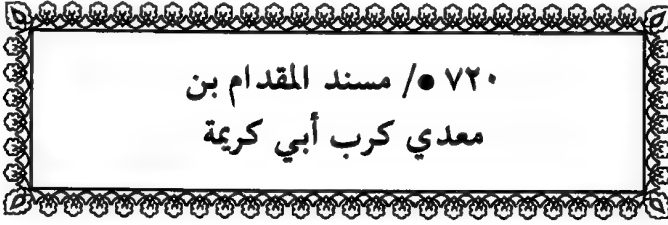 ٧٢٠ ●/ مسند المقدام بن
معدي كرب أبي كريمة